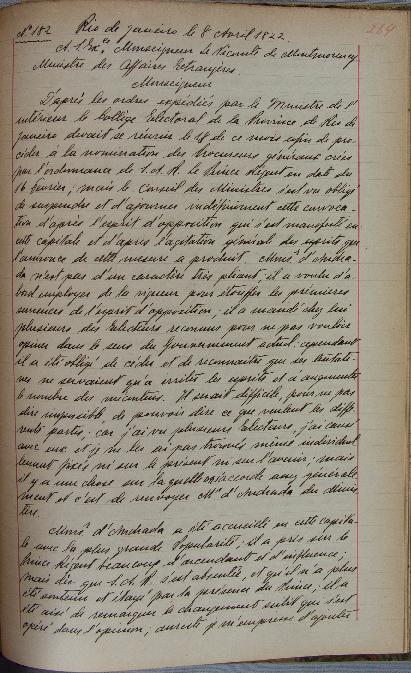 Nº 182 Rio de Janeiro le 8 Avril 1822. 264
A. S. Exc. Monseigneur le Vicomte de Montmorency
Ministre des Affaires Etrangères.
Monseigneur
D'après les ordres expédiés par le Ministre de l'
intérieur le Collège Electoral de la Province de Rio de
Janeiro devait se réunir le 18 de ce mois afin de pro-
céder à la nomination des Procureurs généraux crées
par l'ordonnance de S. A. R. le Prince Régent en date du
16 février; mais le Conseil des Ministres s'est vu obligé
de suspendre et d'ajourner indéfiniment cette convoca-
tion d'après l'esprit d'opposition qui s'est manifesté en
cette capitale et d'après l'agitation générale des esprits que
l'annonce de cette mesure a produit. d'Andra-
da n'est pas d'un caractère très pliant, il a voulu d'a-
bord employer de la rigueur pour étouffer les premières
semences de l'esprit d'opposition; il a mandé chez lui
plusieurs des Electeurs reconnus pour ne pas vouloir
opiner dans le sens du Gouvernement actuel; cependant
il a été obligé de céder et de reconnaître que ses tentati-
ves ne servaient qu'à irriter les esprits et à augmenter
le nombre des mécontens. Il serait difficile, pour ne pas
dire impossible de pouvoir dire ce que veulent les diffé-
rents partis; car j'ai vu plusieurs Electeurs, j'ai causé
avec eux et je ne les ai pas trouvés même individuel-
lement fixés ni sur le présent ni sur l'avenir; mais
il y a une chose sur laquelle on s'accorde assez générale-
ment et c'est de renvoyer Mr. d'Andrada du minis-
tère.
d'Andrada a été accueilli en cette capita-
le avec la plus grande popularité; il a pris sur le
Prince Régent beaucoup d'ascendant et d'influence;
mais dès que S. A. R. s'est absentée, et qu'il n'a plus
été soutenu et étayé par la présence du Prince; il a
été aisé de remarquer le changement subit qui s'est
opéré dans l'opinion; aussi je m'empresse d'ajouter